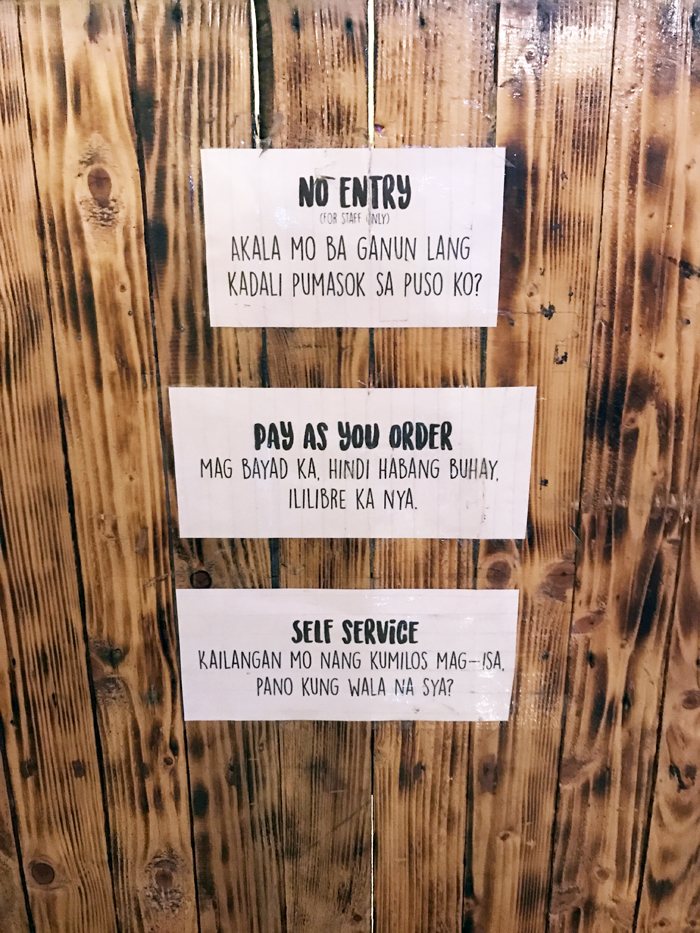 NO ENTRY
(FOR STAFF ONLY)
AKALA MO BA GANUN LANG
KADALI PUMASOK SA PUSO KO?
PAY AS YOU ORDER
MAG BAYAD KA, HINDI HABANG BUHAY,
ILILIBRE KA NYA.
SELF SERVICE
KAILANGAN MO NANG KUMILOS MAG-ISA,
PANO KUNG WALA NA SYA?